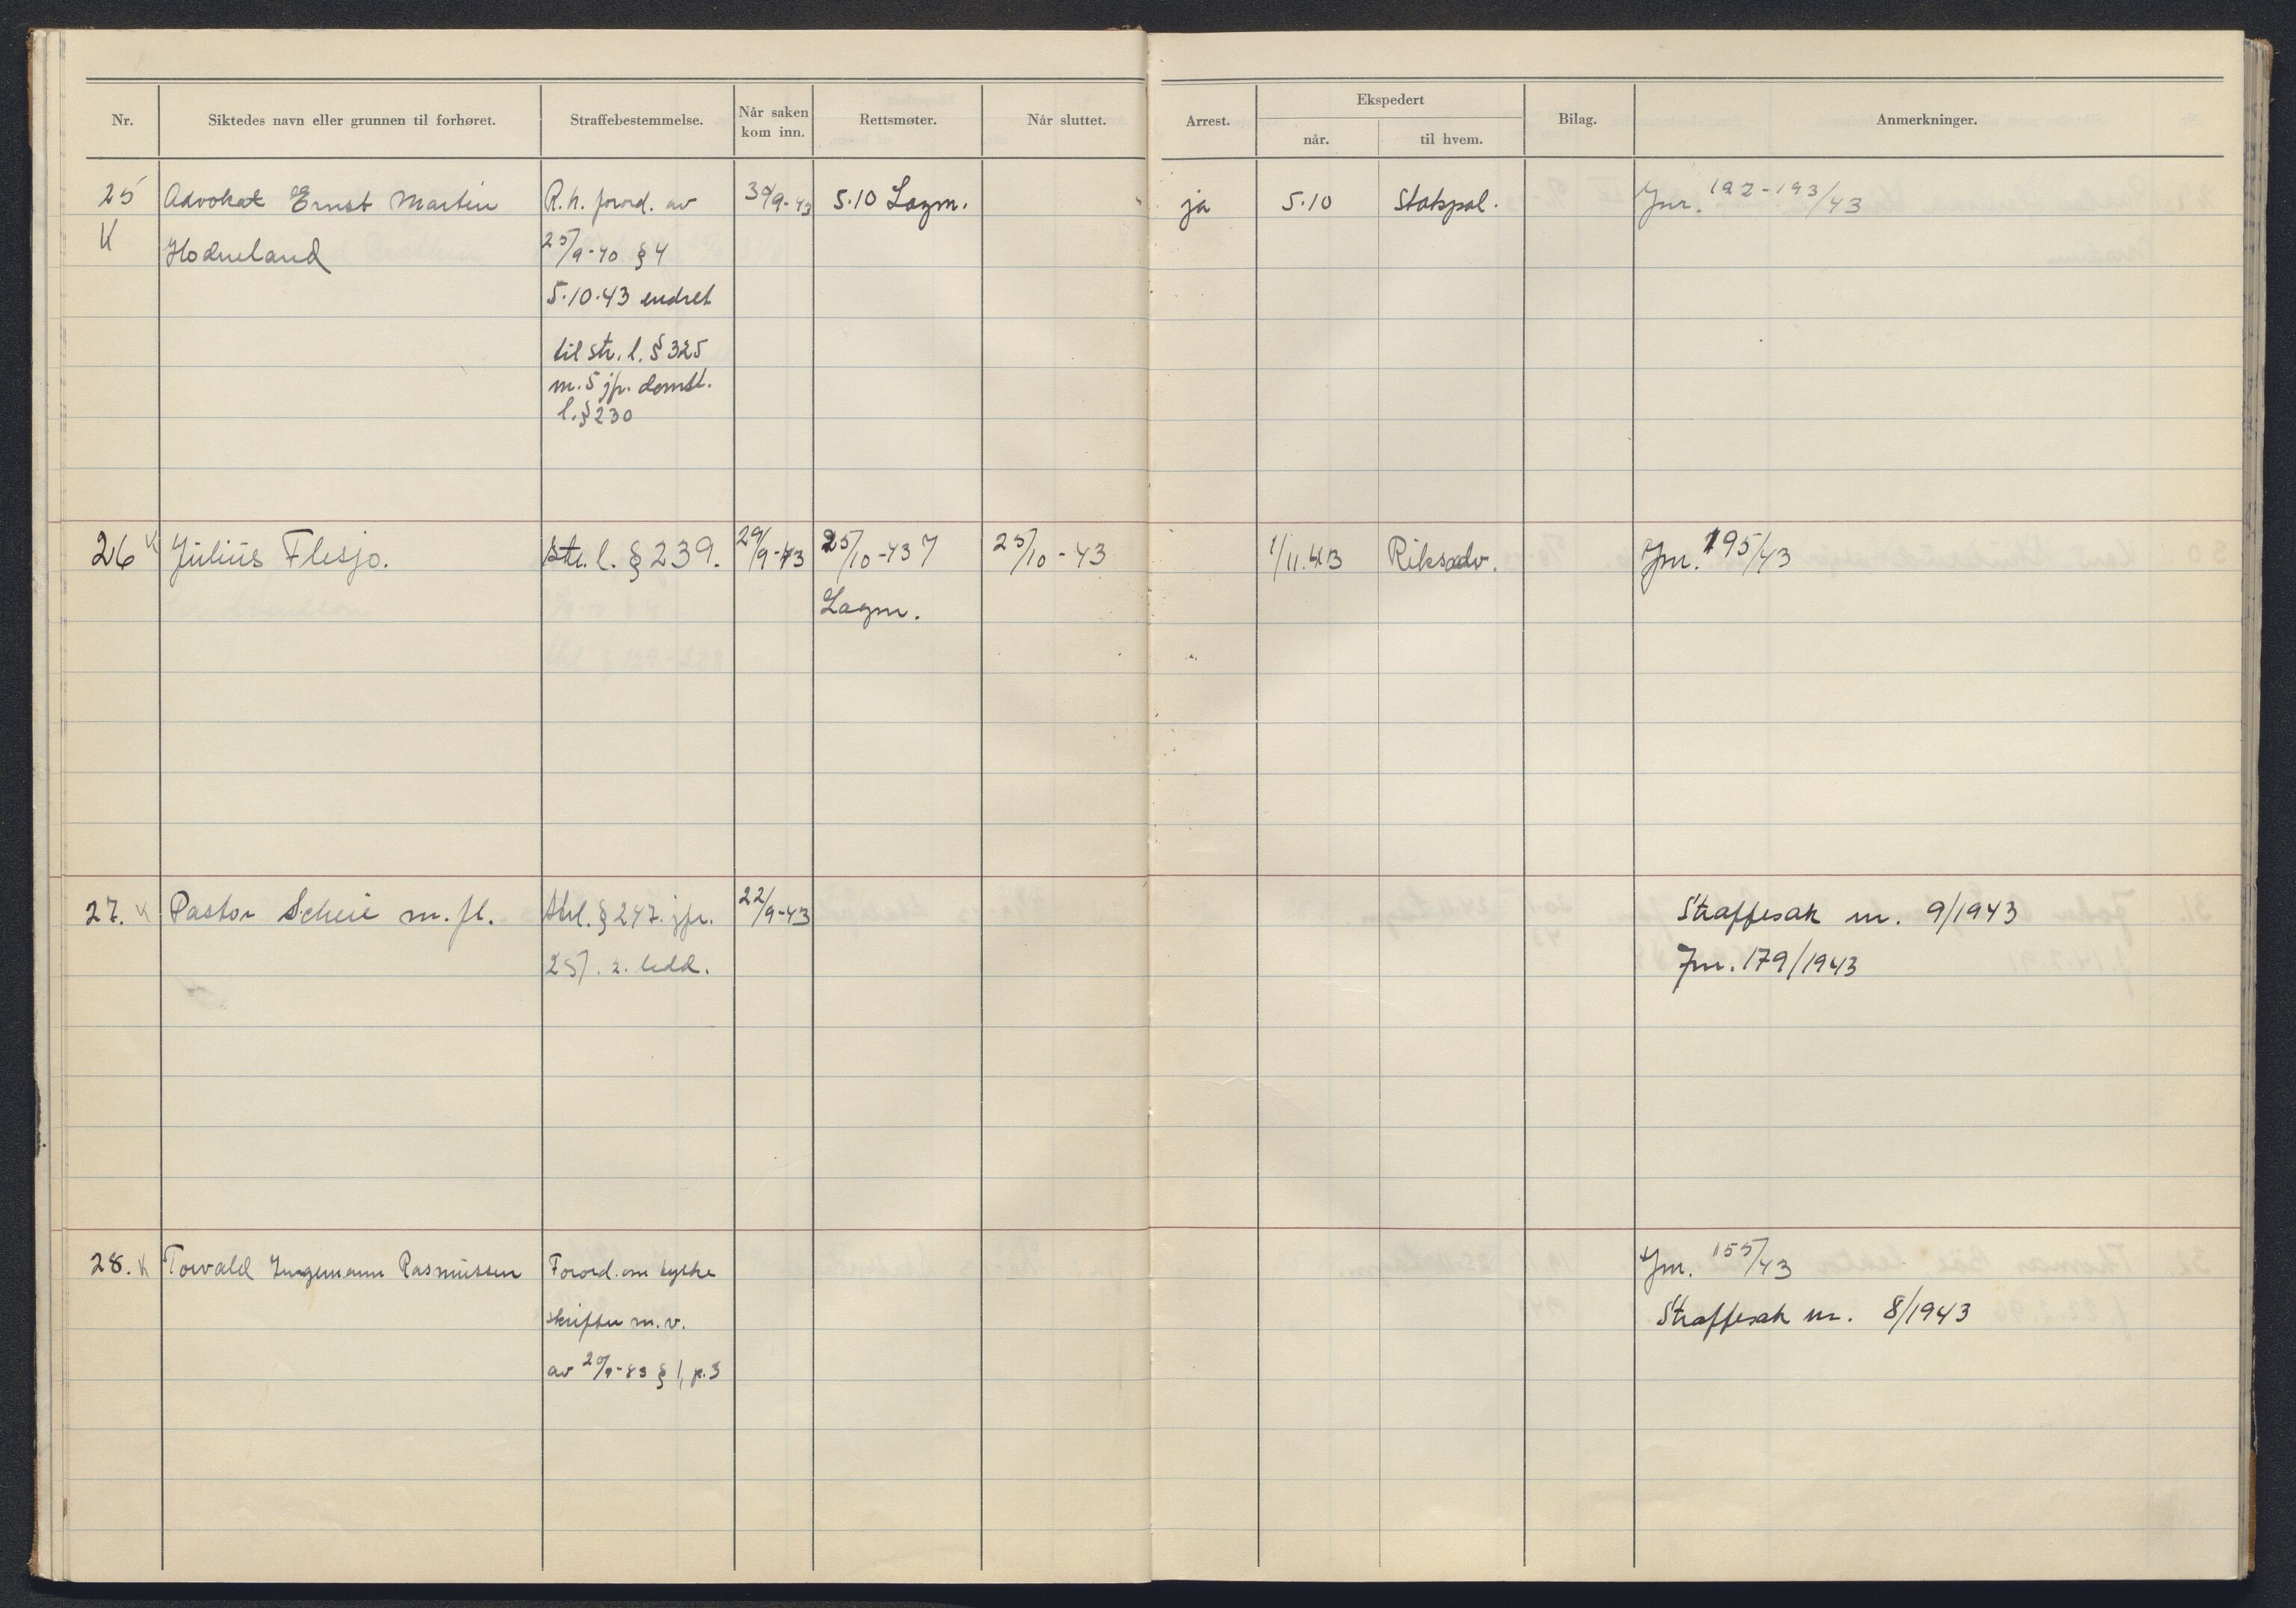 Nr.
Siktedes navn eller grunnen til forhøret.
Straffebestemmelse.
Når saken
kom inn.
Rettsmøter.
Når sluttet.
Arrest.
Ekspedert
når.
til hvem.
Bilag.
Anmerkninger.
25 Advokat Ernst Martin R.h. forord. av 30/9-43 5.10 Lagm. ja 5.10 Statspol. Jnr. 192-193/43
K Hodneland 25/9-40 § 4
5.10.43 endret
til str. l. § 325
m. 5 jfr. domst.
l. § 230
26 K Julius Flesjo. Str. l. § 239. 29/9-43 25/10-43 7 25/10-43 1/11.43 Riksadv. Jnr. 195/43
Lagm.
27. K Pastor Scheie m. fl. Strl. § 247. jfr. 22/9-43 Straffesak nr. 9/1943
257. 2. ledd. Jnr. 179/1943
28. K Torvald Ingemann Rasmussen Forord. om trykte Jnr. 155/43
skrifter m. v. Straffesak nr. 8/1943
av § 1, p. 3